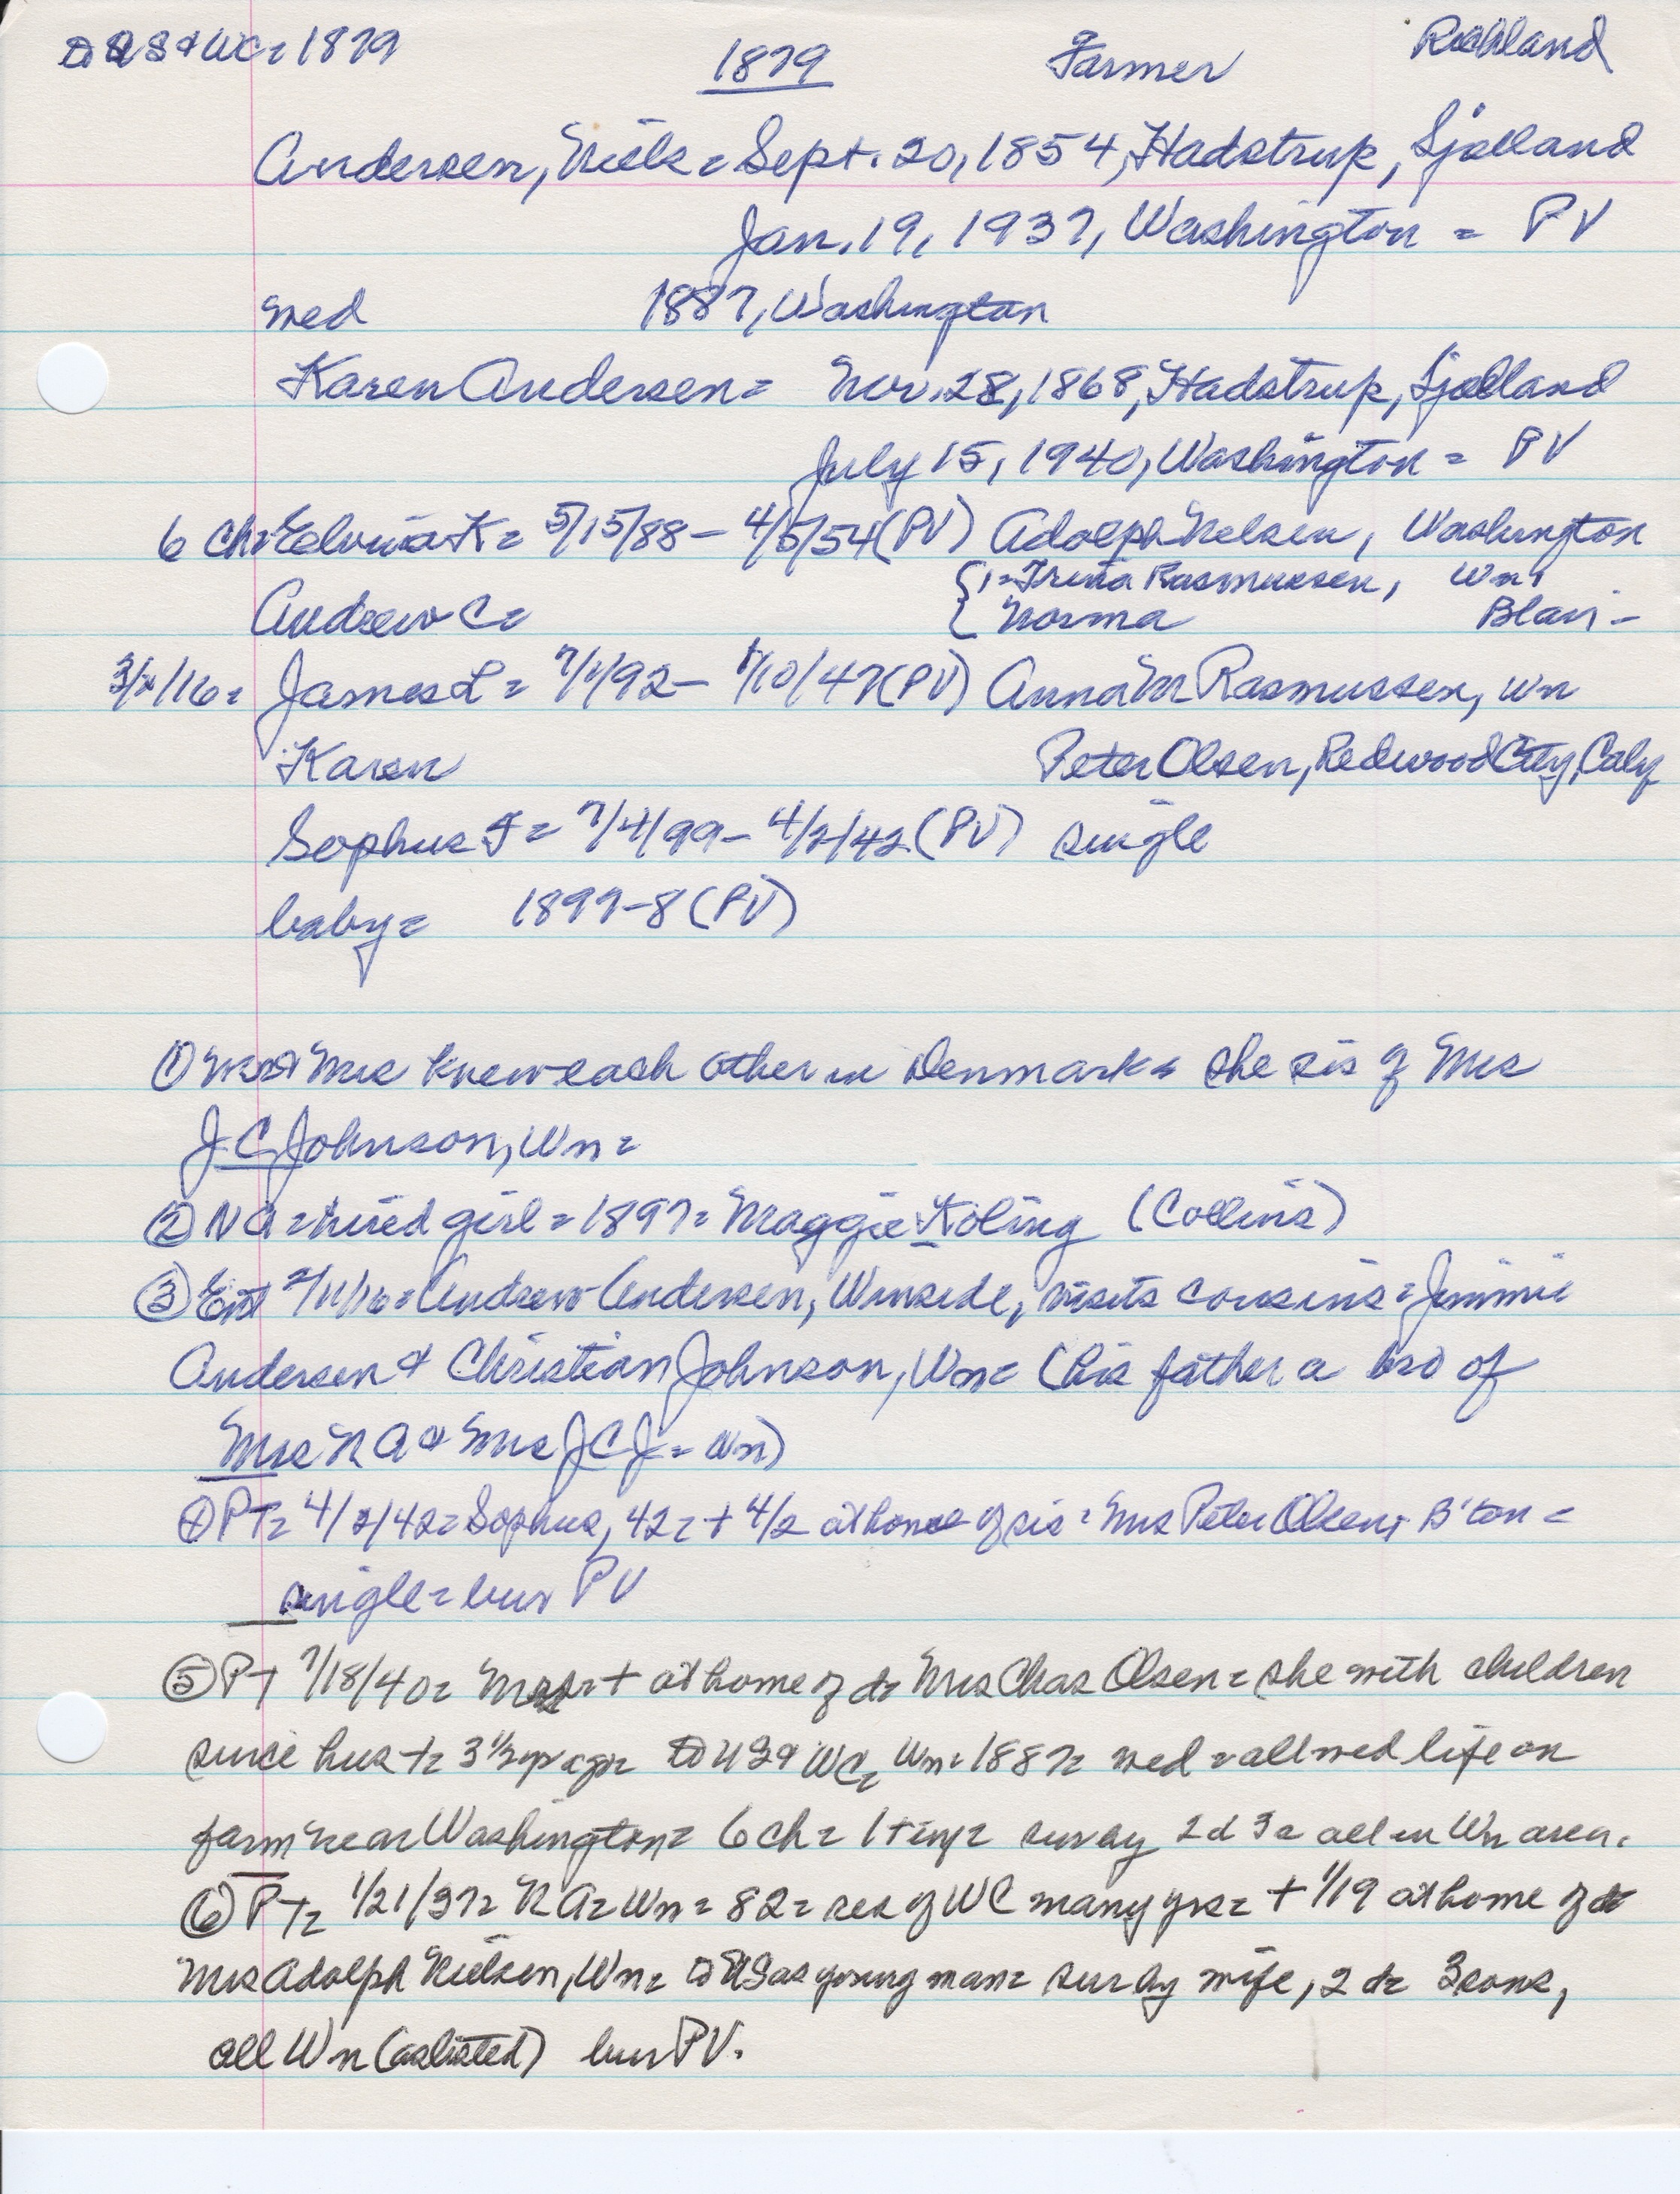 to US & WC = 1879 1879 Farmer Richland
Andersen, Niels = Sept. 20, 1854, Hadstrup, Sjælland
Jan. 19, 1937, Washington = PV
wed 1887, Washington
Karen Andersen = Nov. 28, 1868, Hadstrup, Sjælland
July 15, 1940, Washington = PV
6 ch = Elvina K = 5/15/88 - 4/5/54 (PV) Adolph Nelsen, Washington
{ 1 = Trina Rasmussen, Wn
Andrew C = { Norma Blair -
James L = 7/1/92 - /10/47 (PV) Anna M Rasmussen, Wn
Karen Peter Olsen, Redwood City, Calif
Sophus F = 7/4/99 - 4/2/42 (PV) single
baby = 1897-8 (PV)
① Mr & Mrs knew each other in Denmark = she sis of Mrs
J.C. Johnson, Wn =
② NA = hired girl = 1897 = Maggie Koling (Collins)
③ Ent 2/11/16 = Andrew Andersen, Winside, visits cousins = Jimmie
Andersen & Christian Johnson, Wn = (his father a bro of
Mrs NA & Mrs JCJ = Wn)
④ PT = 4/2/42 = Sophus, 42 = + 4/2 at home of sis = Mrs Peter Olsen, B'ton =
single = bur PV
⑤ PT 7/18/40 = Mrs = + at home of d = Mrs Chas Olsen = she with children
since hus + = 3 1/2 yr ago = to US & WC, Wn = 1887 = wed = all wed life on
farm near Washington = 6 ch = 1 + inf = sur by 2 d 3 s all in Wn area.
⑥ PT = 1/21/37 = NA = Wn = 82 = res of WC many yrs = + 1/19 at home of d =
Mrs Adolph Nielsen, Wn = to US as young man = sur by wife, 2 d = 3 sons,
all Wn (as listed) bur PV.